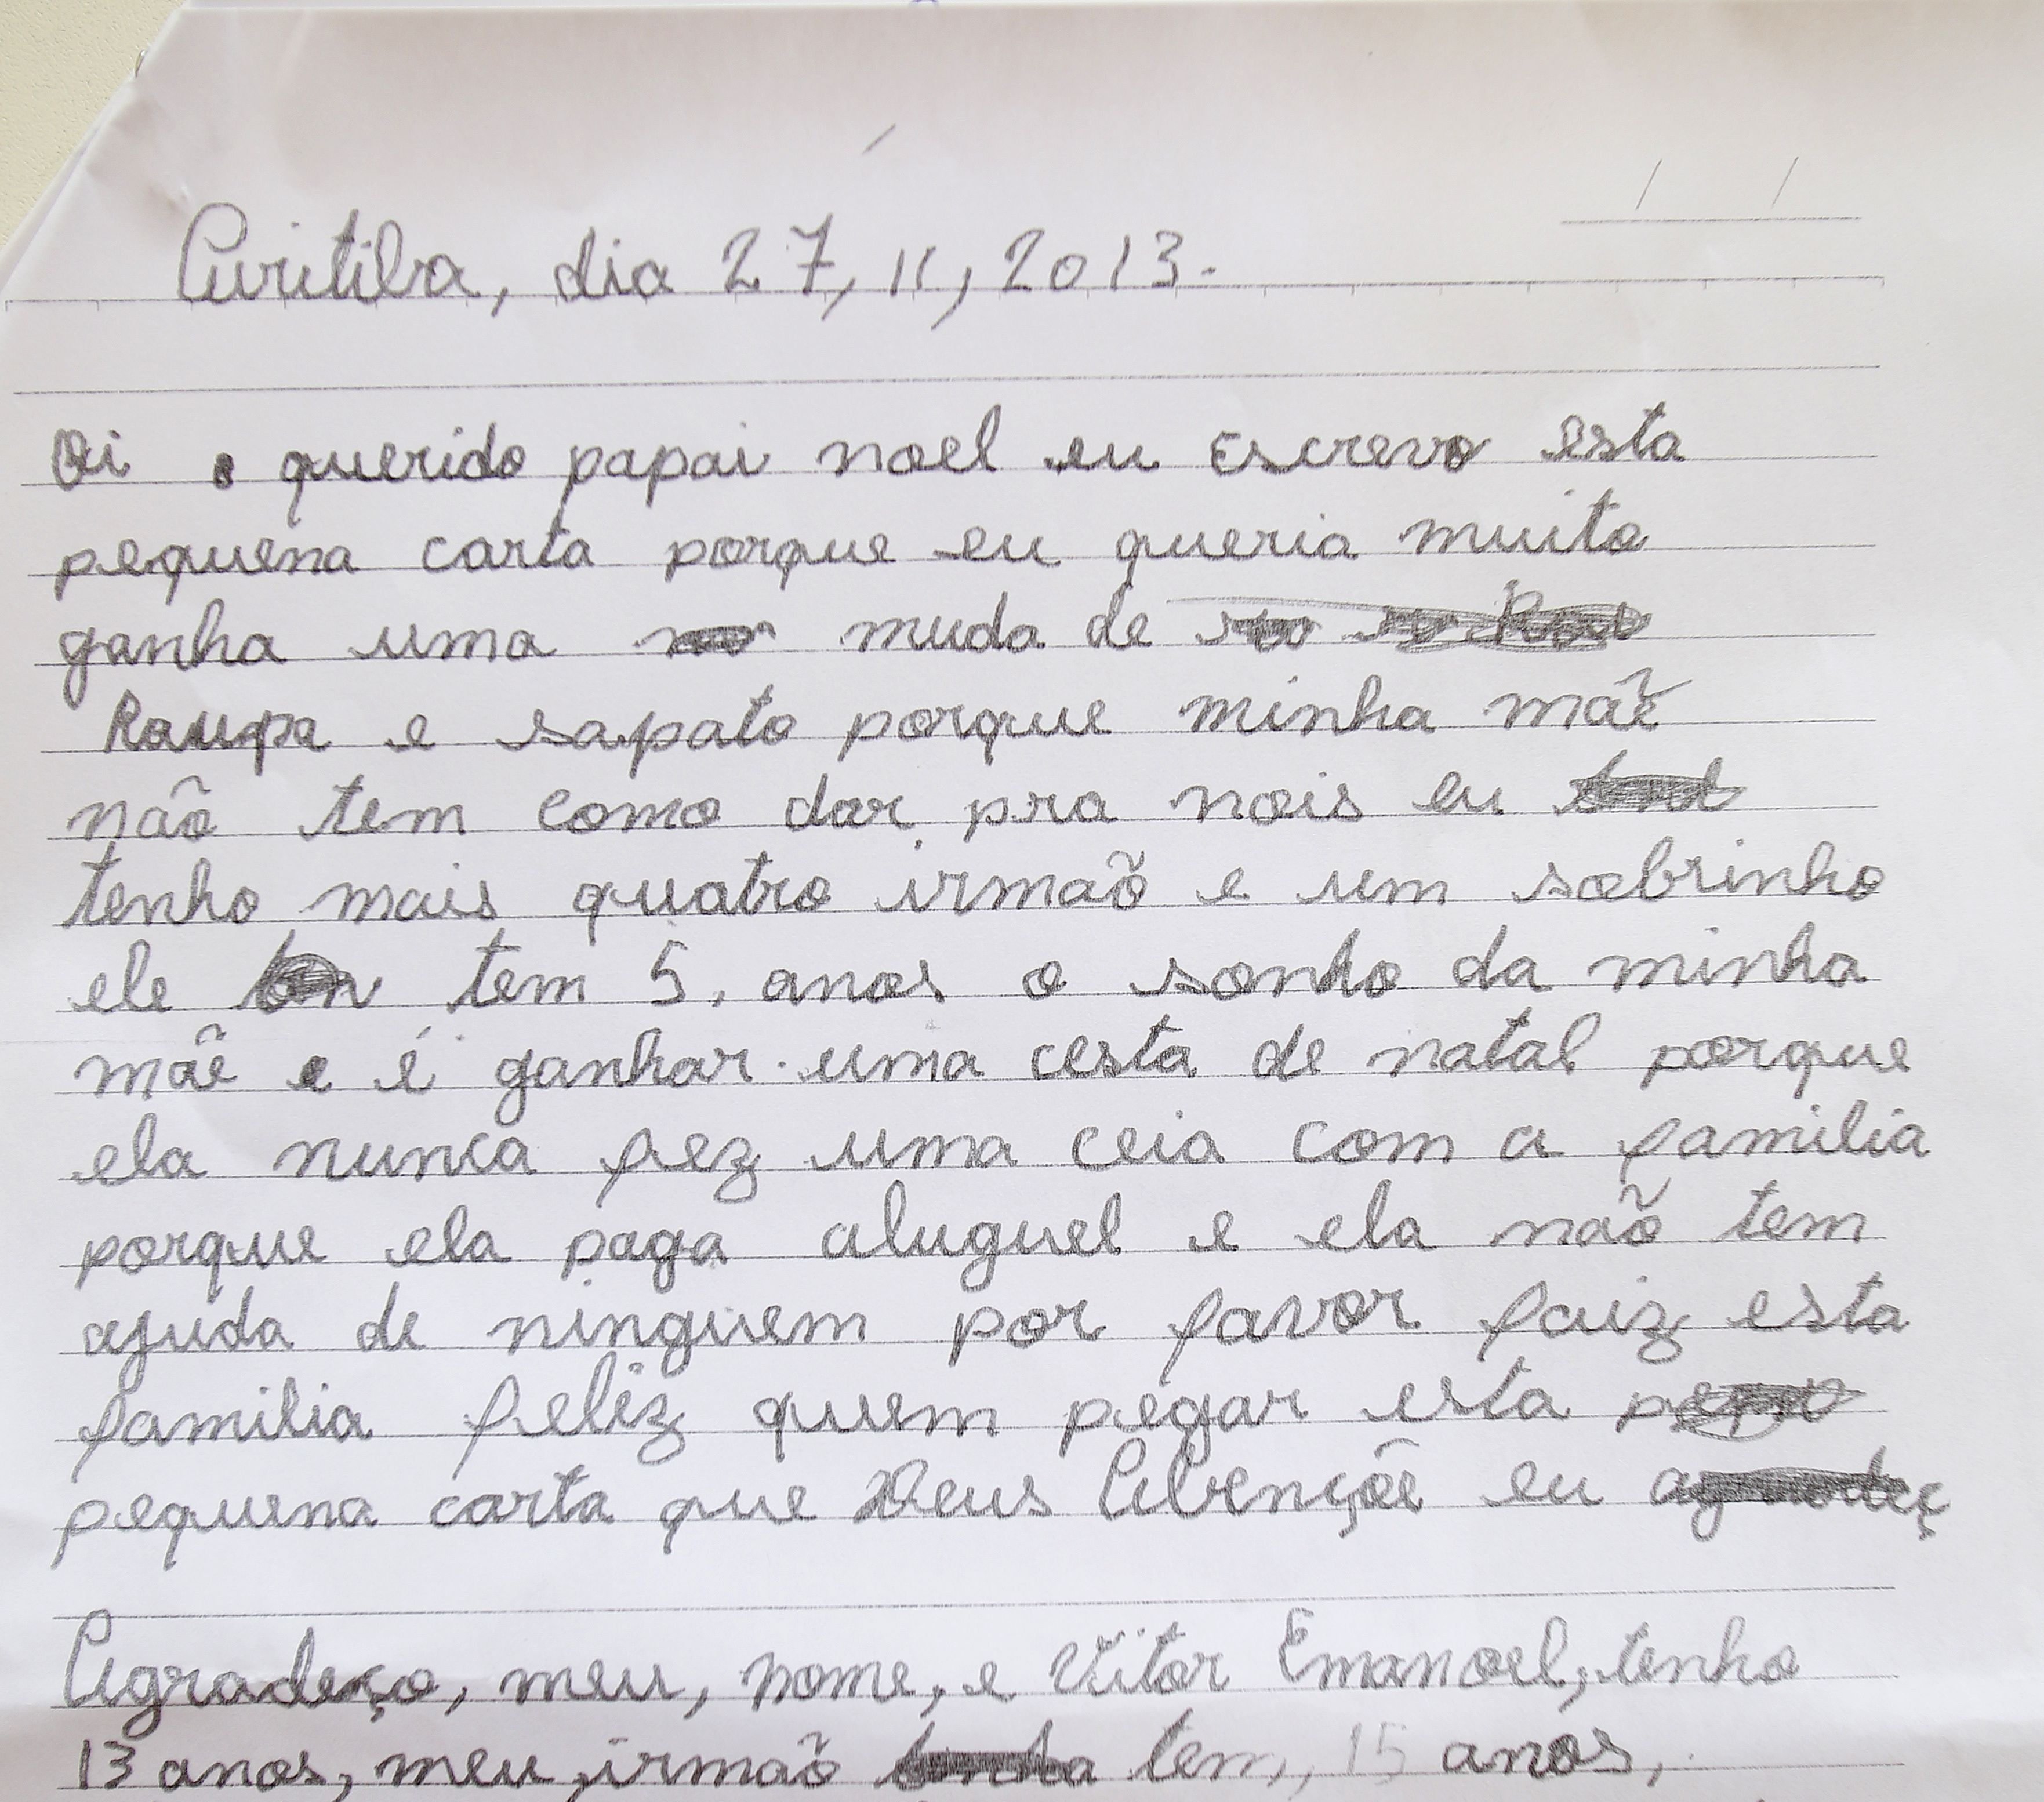 Curitiba, dia 27, 11, 2013.
/ /
Oi o querido papai noel eu Escrevo esta
pequena carta porque eu queria muito
ganha uma muda de
Roupa e sapato porque minha mãe
não tem como dar pra nois eu
tenho mais quatro irmaõ e um sobrinho
ele tem 5. anos o sonho da minha
mãe e é ganhar uma cesta de natal porque
ela nunca fez uma ceia com a familia
porque ela paga aluguel e ela naõ tem
ajuda de ninguem por favor faiz esta
familia feliz quem pegar esta
pequena carta que Deus Abençõe eu
Agradeço, meu, nome, e Vitor Emanoel, tenho
13 anos, meu, irmaõ tem, 15 anos,